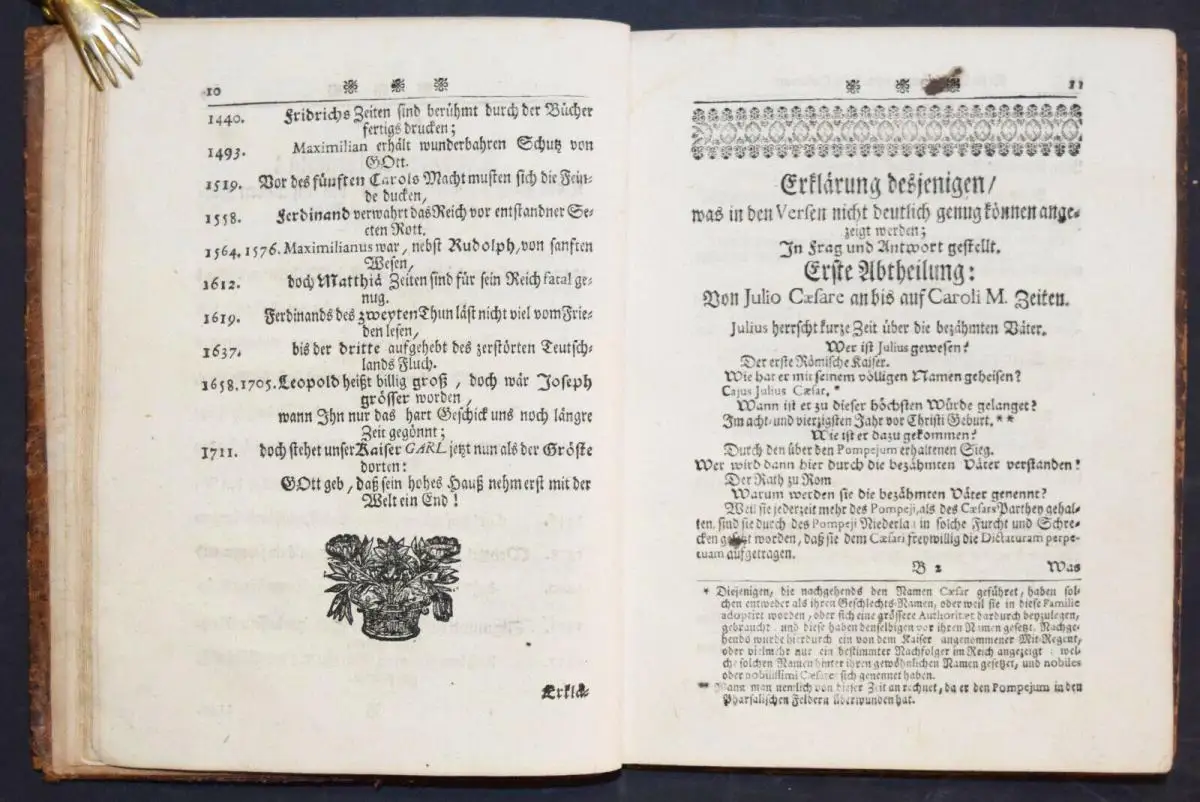 10
1440. Fridrichs Zeiten sind berühmt durch der Bücher
fertigs drucken;
1493. Maximilian erhält wunderbahren Schutz von
GOtt.
1519. Vor des fünften Carols Macht musten sich die Fein-
de ducken,
1558. Ferdinand verwahrt das Reich vor entstandner Se-
cten Rott.
1564. 1576. Maximilianus war, nebst Rudolph, von sanften
Wesen,
1612. doch Matthiä Zeiten sind für sein Reich fatal ge-
nug.
1619. Ferdinands des zweyten Thun läst nicht viel vom Frie-
den lesen,
1637. bis der dritte aufgehebt des zerstörten Teutsch-
lands Fluch.
1658. 1705. Leopold heißt billig groß, doch wär Joseph
grösser worden,
wann Ihn nur das hart Geschick uns noch längre
Zeit gegönnt;
1711. doch stehet unser Kaiser CARL jetzt nun als der Gröste
dorten:
GOtt geb, daß sein hohes Hauß nehm erst mit der
Welt ein End!
Erklä-
11
Erklärung desjenigen/
was in den Versen nicht deutlich genug können ange-
zeigt werden;
In Frag und Antwort gestellt.
Erste Abtheilung:
Von Julio Cæsare an bis auf Caroli M. Zeiten.
Julius herrscht kurze Zeit über die bezähmten Väter.
Wer ist Julius gewesen?
Der erste Römische Kaiser.
Wie hat er mit seinem völligen Namen geheisen?
Cajus Julius Cæsar. *
Wann ist er zu dieser höchsten Würde gelanget?
Im acht- und vierzigsten Jahr vor Christi Geburt. **
Wie ist er dazu gekommen?
Durch den über den Pompejum erhaltenen Sieg.
Wer wird dann hier durch die bezähmten Väter verstanden?
Der Rath zu Rom
Warum werden sie die bezähmten Väter genennt?
Weil sie jederzeit mehr des Pompeji, als des Cæsars Parthey gehal-
ten, sind sie durch des Pompeji Niederla in solche Furcht und Schre-
cken worden, daß sie dem Cæsari freywillig die Dictaturam perpe-
tuam aufgetragen.
B 2 Was
* Diejenigen, die nachgehends den Namen Cæsar geführet, haben sol-
chen entweder als ihren Geschlechts-Namen, oder weil sie in diese Familie
adoptirt worden, oder sich eine grössere Authoritæt dardurch beyzulegen,
gebraucht: und diese haben denselbigen vor ihren Namen gesetzt. Nachge-
hends wurde hierdurch ein von dem Kaiser angenommener Mit-Regent,
oder vielmehr nur ein bestimmter Nachfolger im Reich angezeigt: wel-
che solchen Namen hinter ihren gewöhnlichen Namen gesetzet, und nobiles
oder nobilissimi Cæsares sich genennet haben.
** Wann man nemlich von dieser Zeit an rechnet, da er den Pompejum in den
Pharsalischen Feldern überwunden hat.